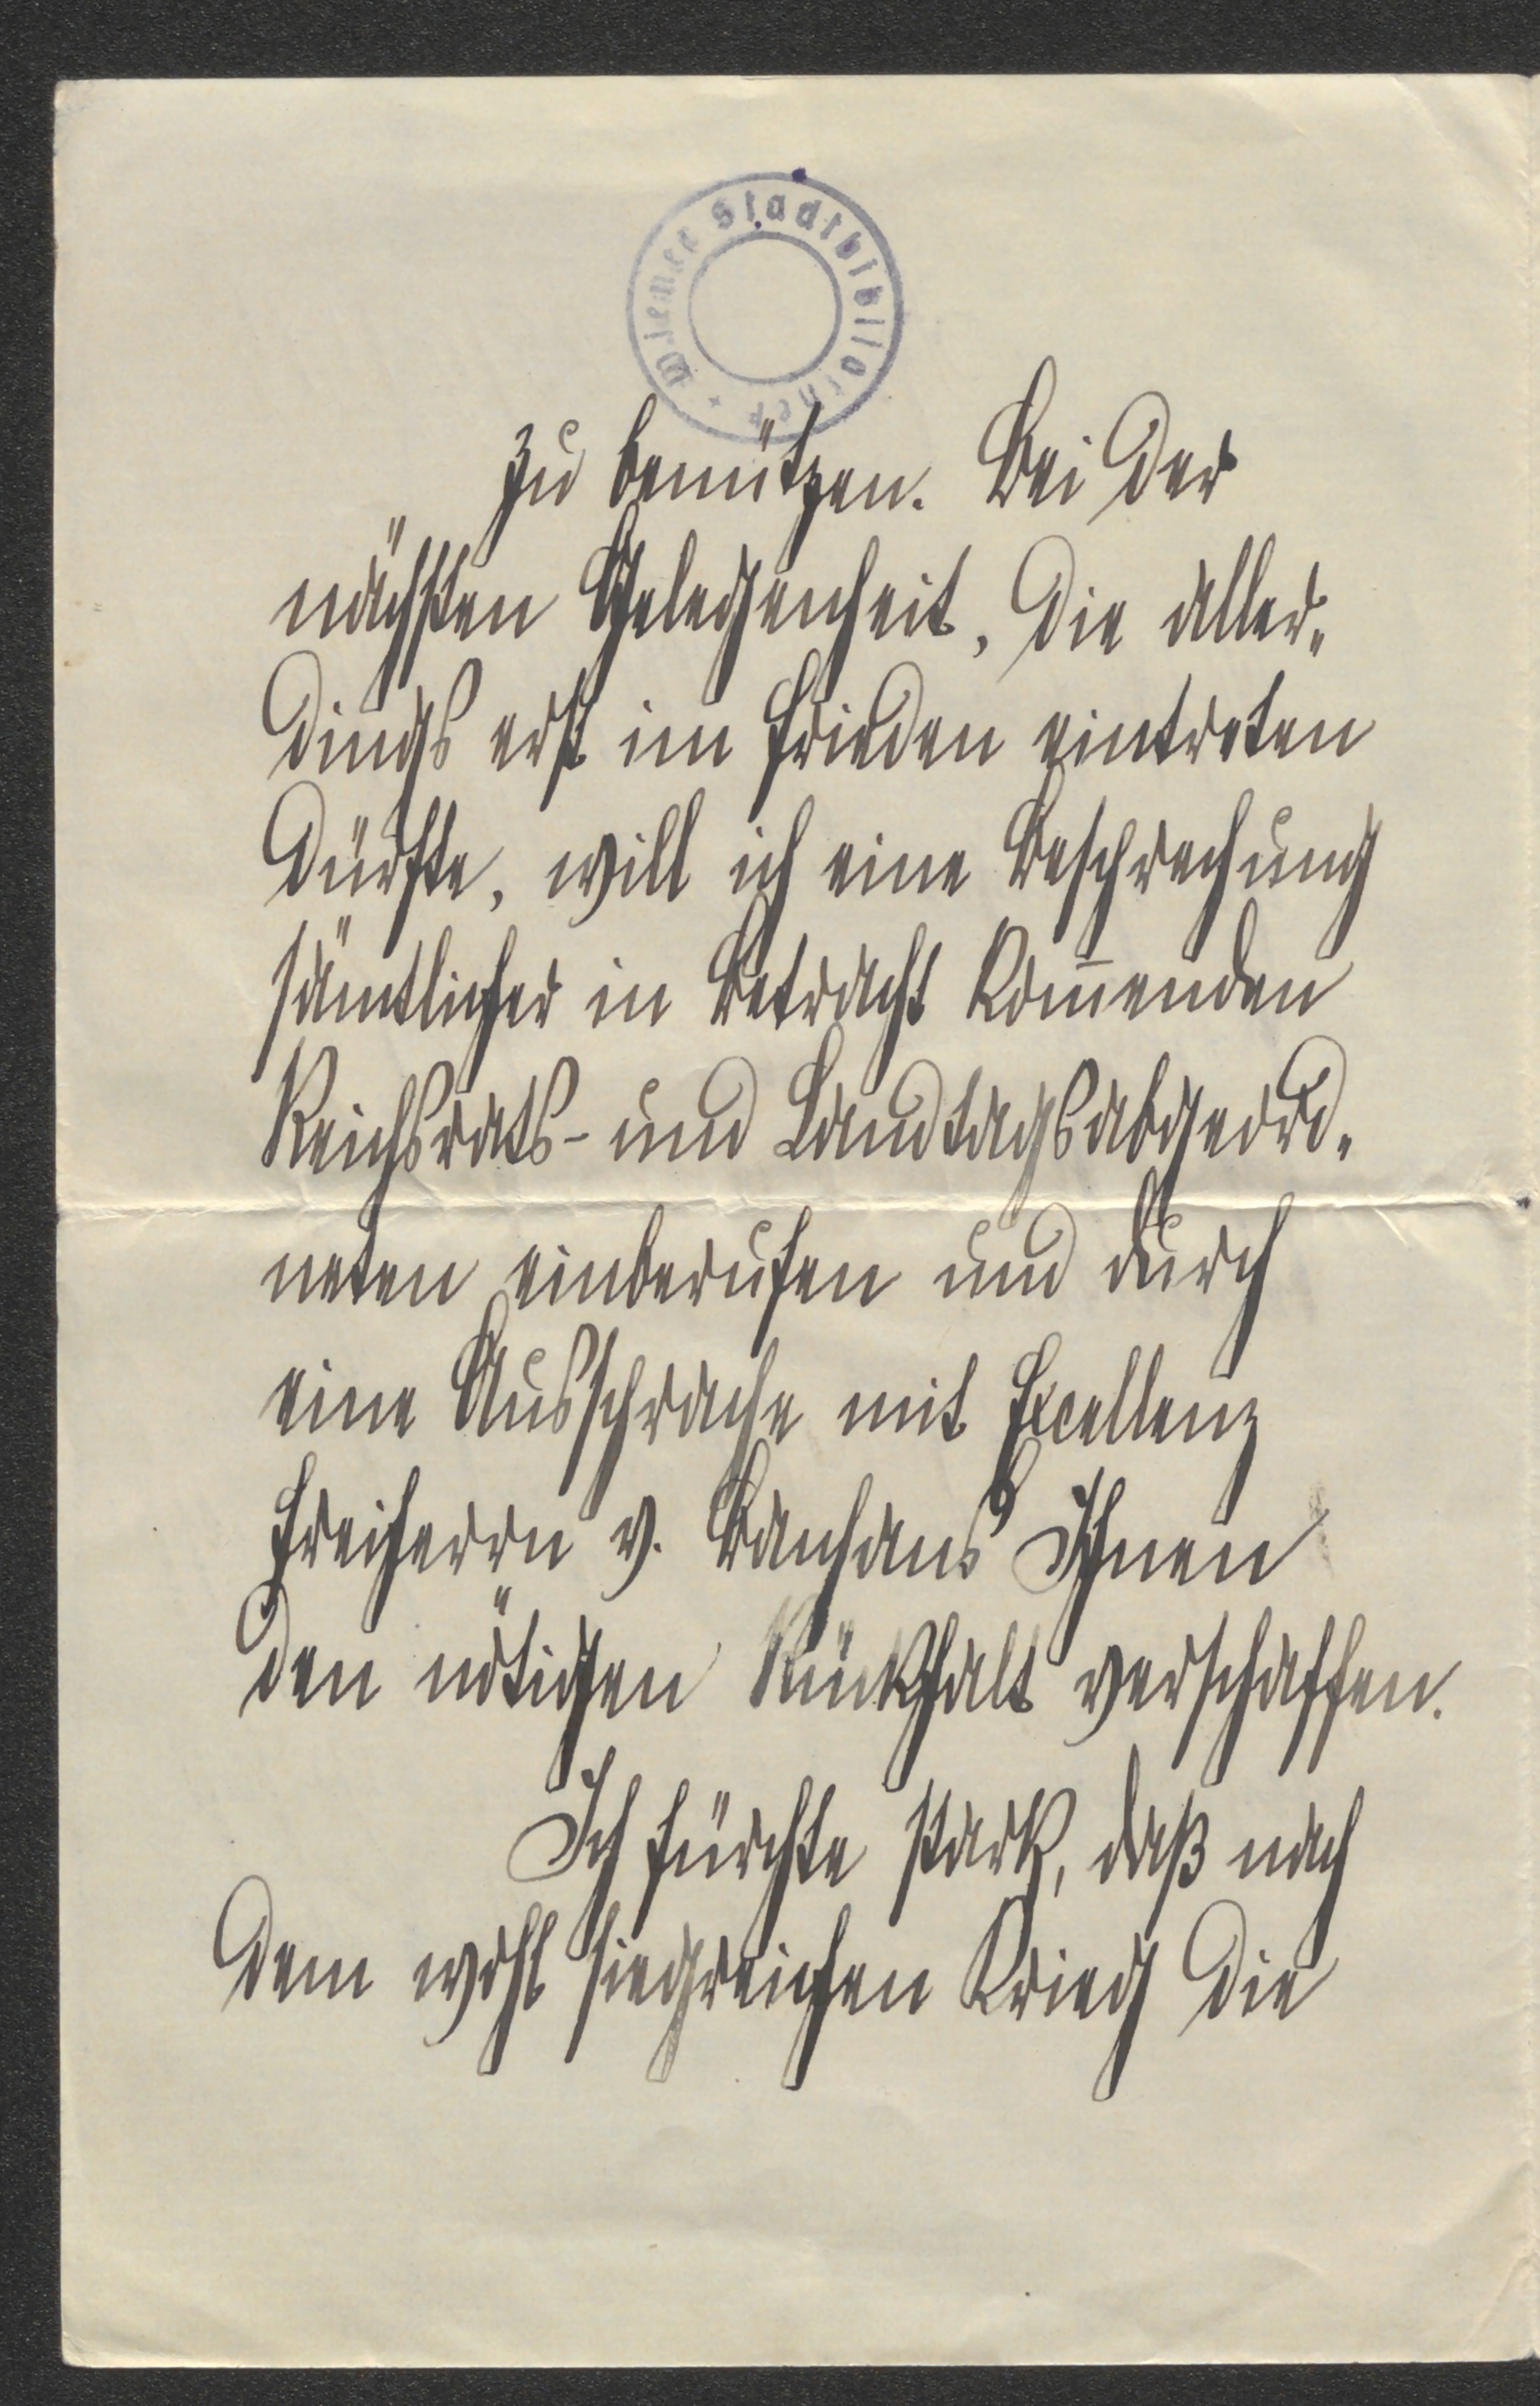 Wiener Stadtbibliothek *
zu benützen. Bei der
nächsten Gelegenheit, die aller„
dings erst im Frieden eintreten
dürfte, will ich eine Besprechung
sämtlicher in Betracht kom̅enden
Reichsrats- und Landtagsabgeord„
neten einberufen und durch
eine Aussprache mit Excellenz
Freiherrn v. Banhans Ihnen
den nötigen Rückhalt verschaffen.
Ich fürchte stark, daß nach
dem wohl siegreichen Krieg die